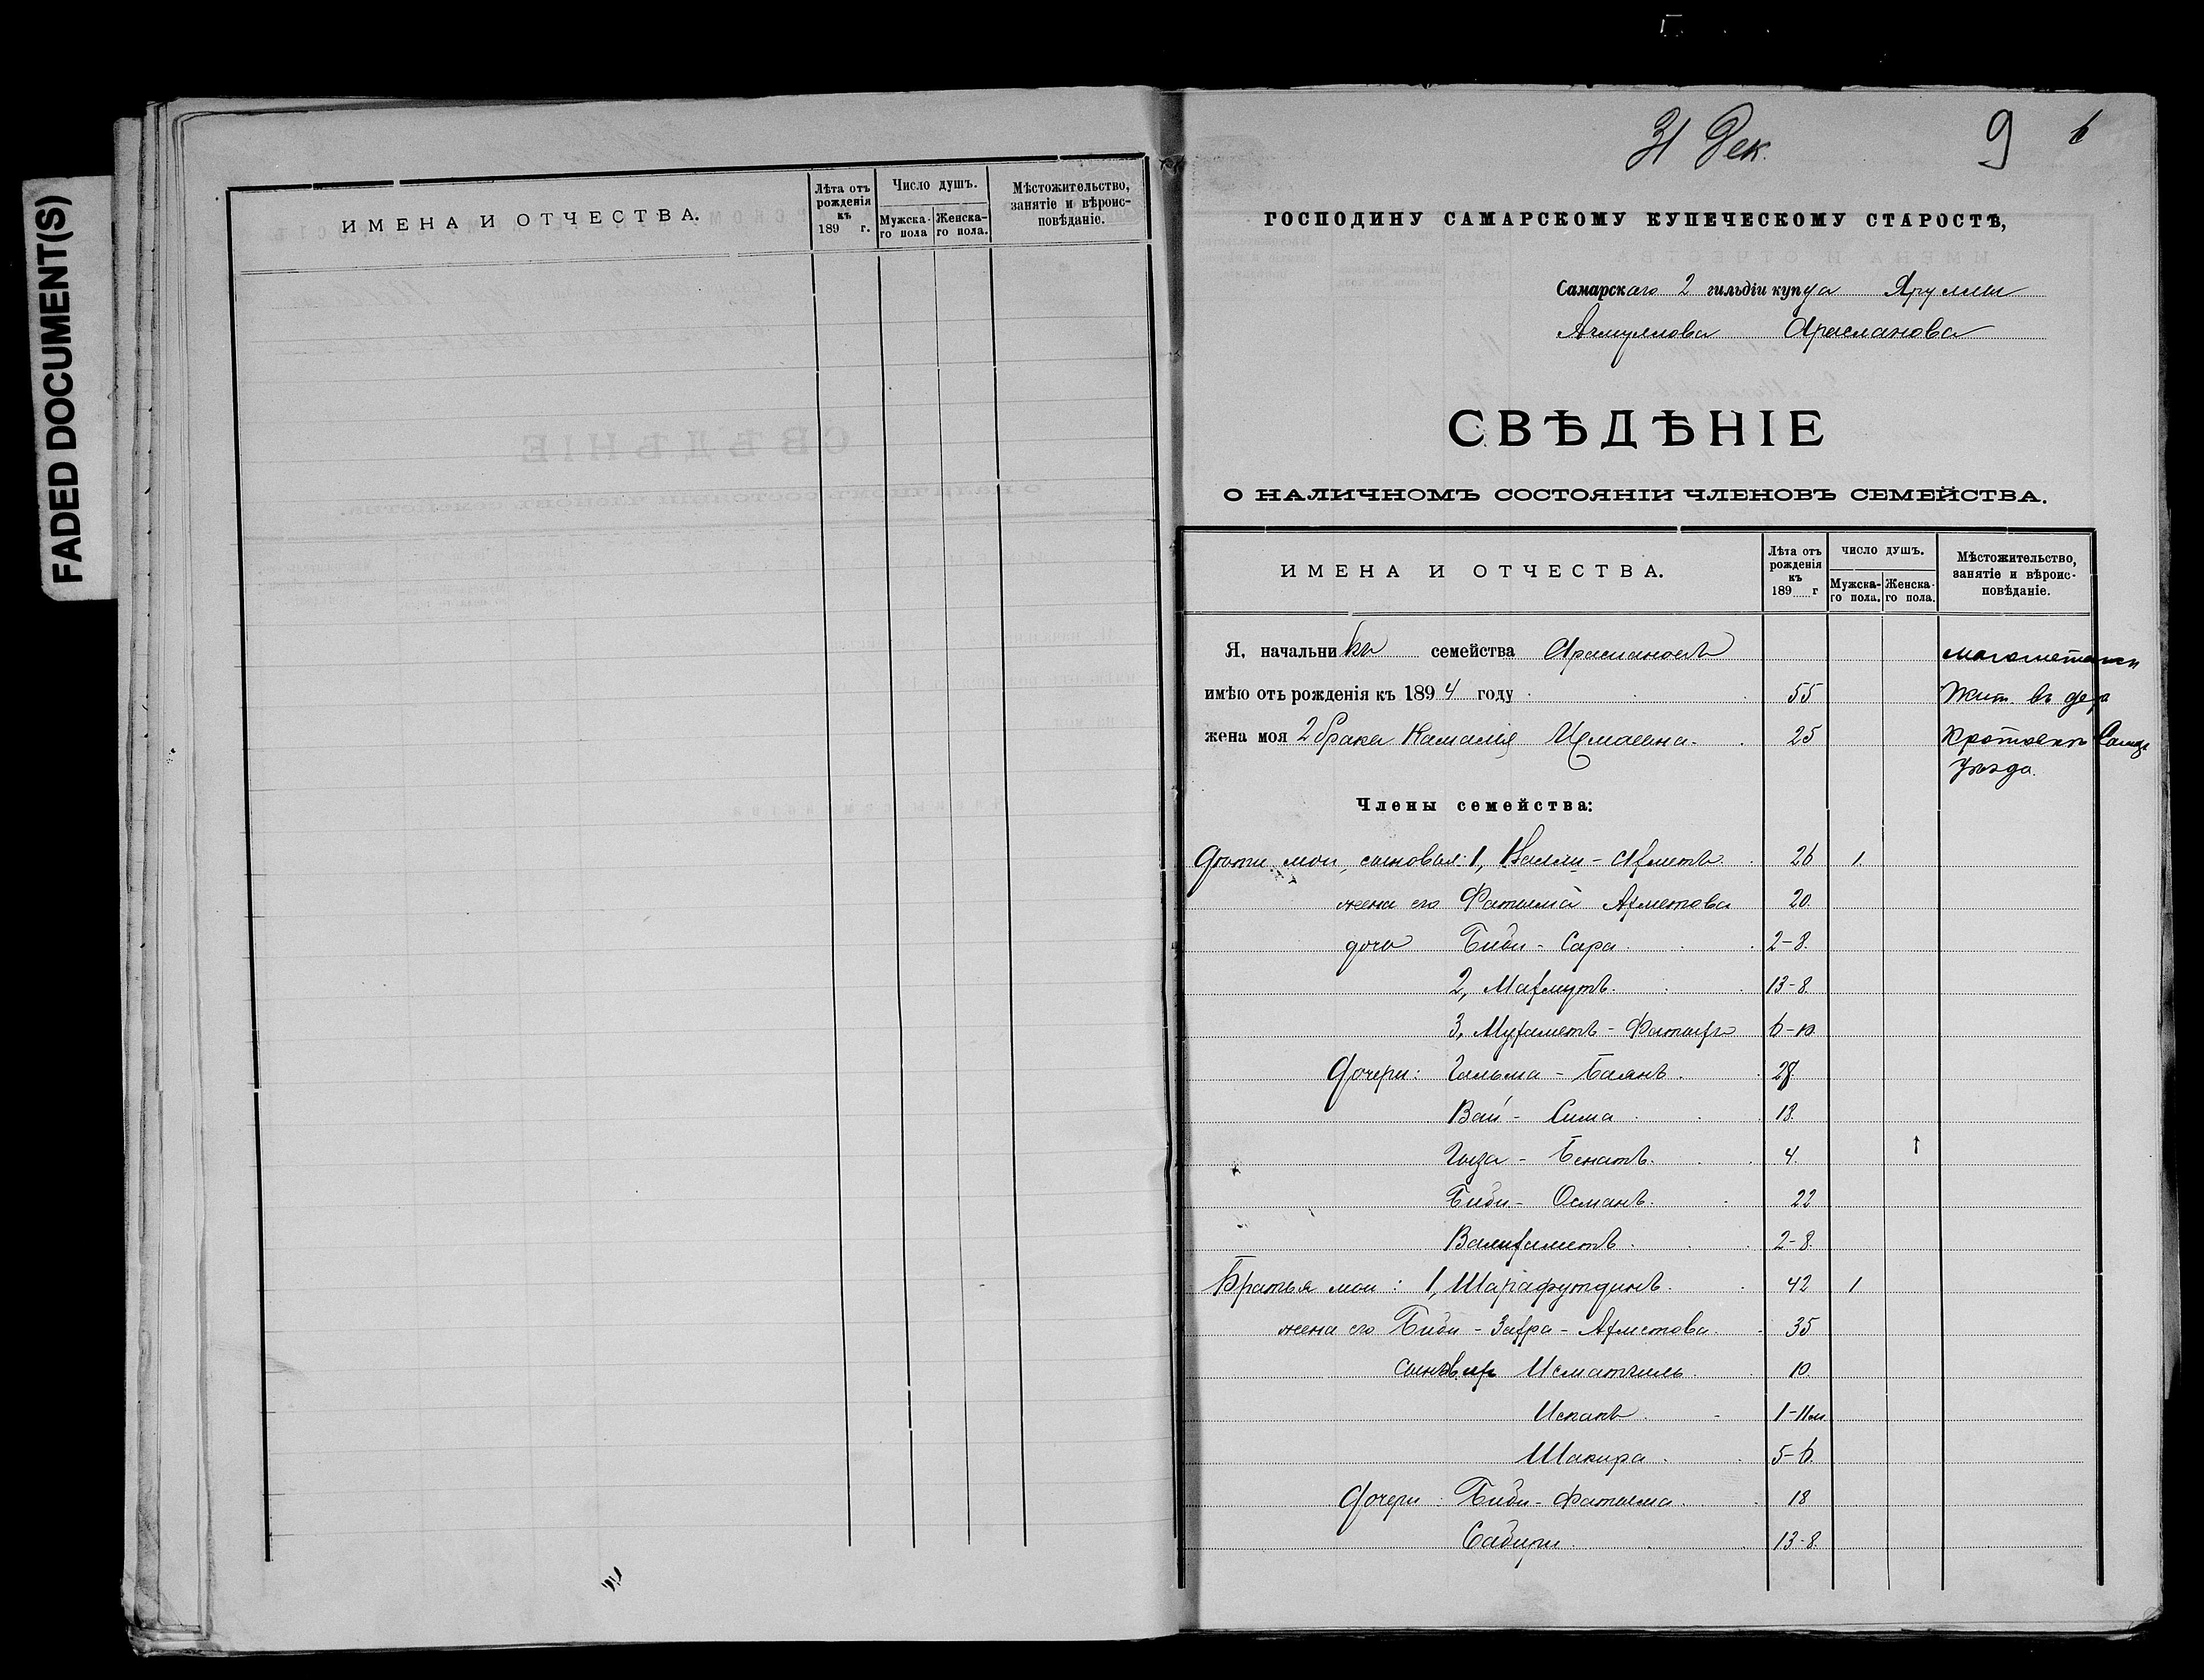 FADED DOCUMENT(S)
ИМЕНА И ОТЧЕСТВА.
Лѣта отъ рожденія къ 189 г.
Число душъ.
Мужска-го пола
Женска-го пола.
Мѣстожительство, занятіе и вѣроис-повѣданіе.
31 Дек.
9
6
ГОСПОДИНУ САМАРСКОМУ КУПЕЧЕСКОМУ СТАРОСТѢ,
Самарскаго 2 гильдіи купца Яруллы
Арасланова
СВѢДѢНІЕ
О НАЛИЧНОМЪ СОСТОЯНІИ ЧЛЕНОВЪ СЕМЕЙСТВА.
ИМЕНА И ОТЧЕСТВА.
Лѣта отъ рожденія къ 189 г
ЧИСЛО ДУШЪ.
Мужска-го пола.
Женска-го пола.
Мѣстожительство, занятіе и вѣроис-повѣданіе.
Я, начальникъ семейства Араслановъ
имѣю отъ рожденія къ 1894 году 55 Жит. въ дер
жена моя 2 брака Камалія 25 Кротовкѣ
уѣзда.
Члены семейства:
Дѣти мои, сыновья: 1, Ахметъ 26 1
жена его Фатыма Ахметова 20.
дочь Биби-Сара 2-8.
2, Махмутъ 13-8.
3, Мухаметъ-Фатыхъ 6-10
Дочери: Гильма-Баянъ 28.
Вай-Сима 13.
Бенатъ 4. 1
Биби-Османъ 22
2-8.
Братья мои: 1, Шарафутдинъ 42 1
жена его Биби-Зафра-Ахметова 35
Исматчиль 10.
Исхакъ 1-11м
Шакира 5-6.
Дочери: Биби-Фатыма 18
Сабири 13-8.